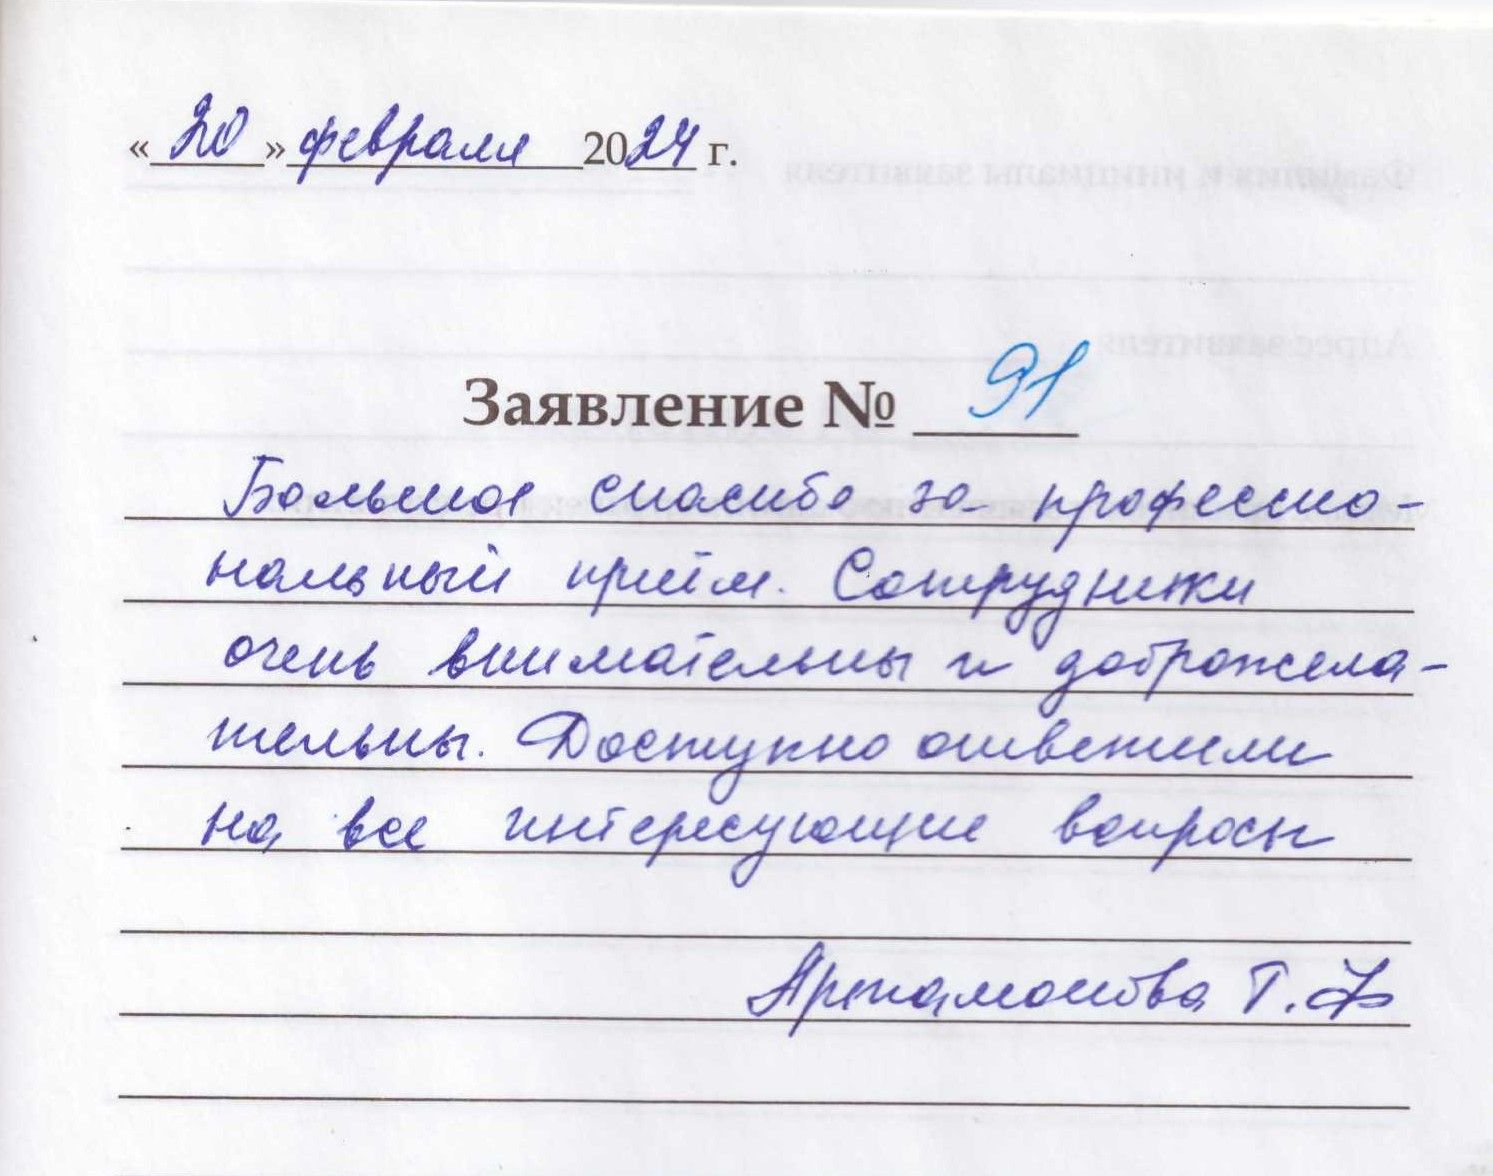 «20» февраля 2024 г.
Заявление № 91
Большое спасибо за профессио-
нальный приём. Сотрудники
очень внимательны и доброжела-
тельны. Доступно ответили
на все интересующие вопросы
Артамонова Т.